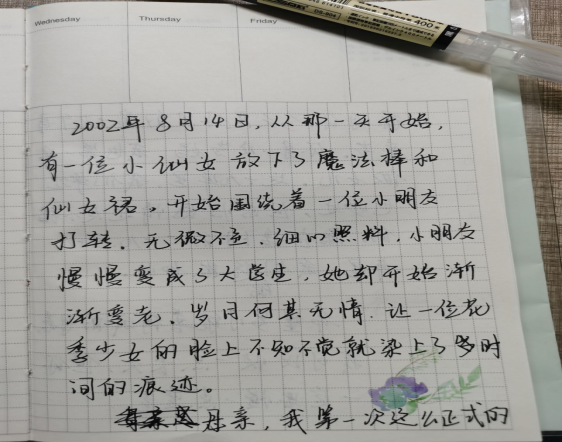 Wednesday Thursday Friday
400
2002年8月14日,从那一天开始,
有一位小仙女放下了魔法棒和
仙女裙,开始围绕着一位小朋友
打转,无微不至,细心照料,小朋友
慢慢变成了大学生,她却开始渐
渐变老,岁月何其无情,让一位花
季少女的脸上不知不觉就染上了岁时
间的痕迹。
母亲,我第一次这么正式的